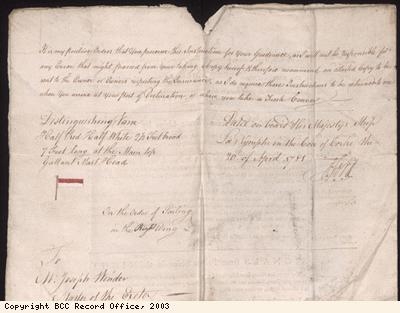 It is my positive Orders that You preserve this Instruction for Your Guidance, as I will not be responsible for
any Error that might proceed from Your taking a Copy hereof & therefore recommend an attested Copy to be
sent to the Owner or Owners respecting the Insurance, as I do require these Instructions to be delivered to me
when You arrive at Your Port of Destination, or where You take a Fresh Convoy
Distinguishing Vane
Half Red Half White 2½ Feet broad
7 Feet long at the Main top
Gallant Mast Head
Dated on board His Majesty's Ship
La Nymphe in the Cove of Corke the
20 of April 1781
In the Order of Sailing
in the Wing
To
Mr. Joseph Winder
Master of the Exeter
Copyright BCC Record Office, 2003